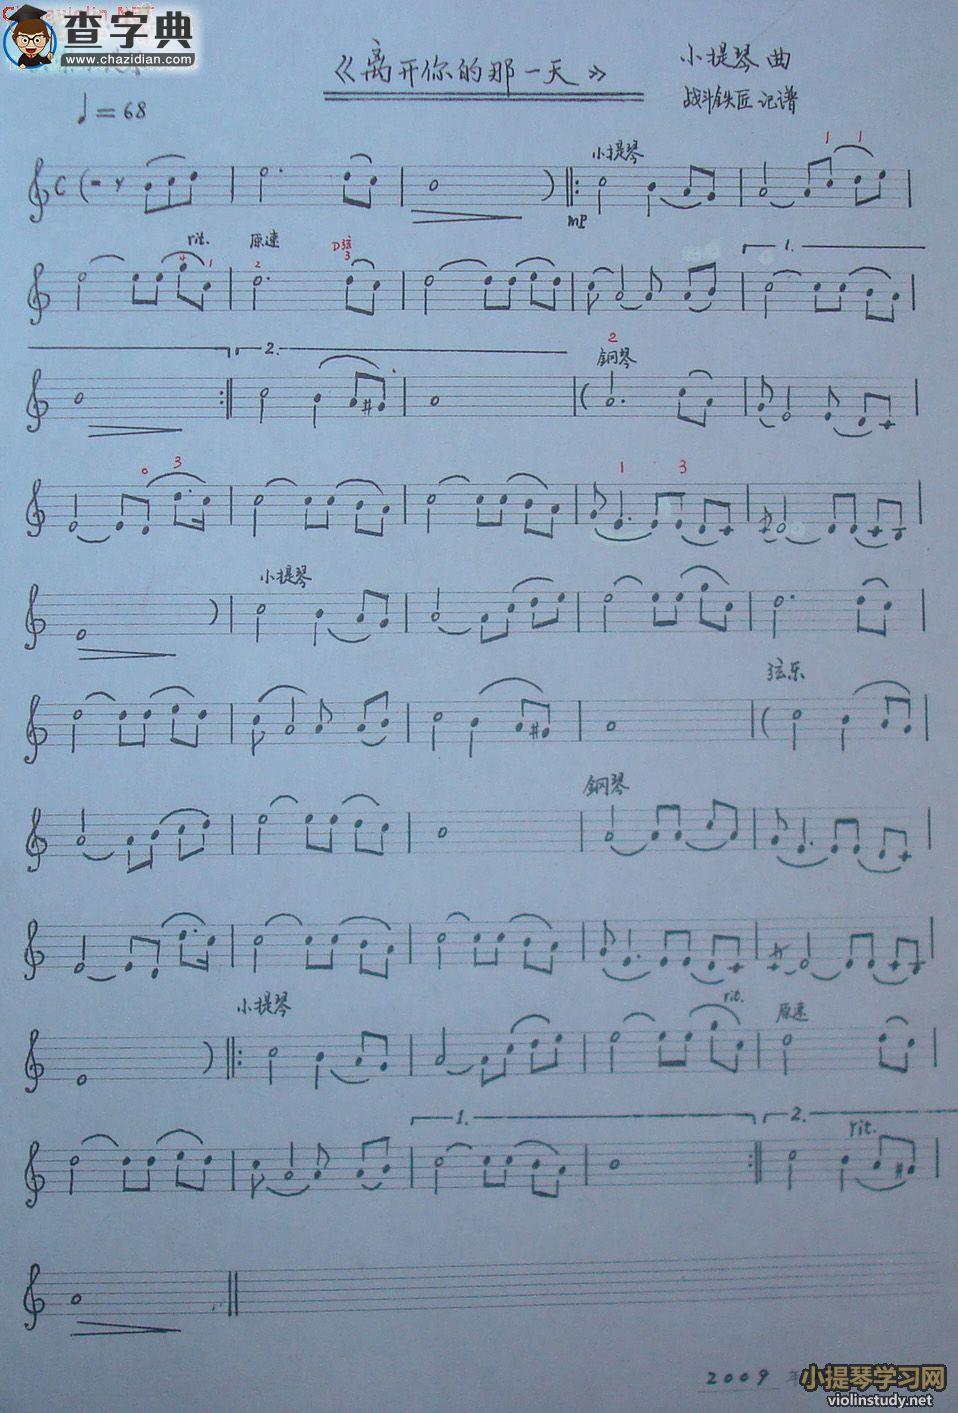 查字典
www.chazidian.com
《离开你的那一天》
小提琴 曲
战斗铁匠 记谱
♩=68
小提琴
1 1
mp
rit.
原速
D弦
3
4 1 2
1.
2.
2
鋼琴
0 3
1 3
小提琴
弦乐
鋼琴
小提琴
rit.
原速
1.
2.
rit.
2009 年
小提琴学习网
violinstudy.net